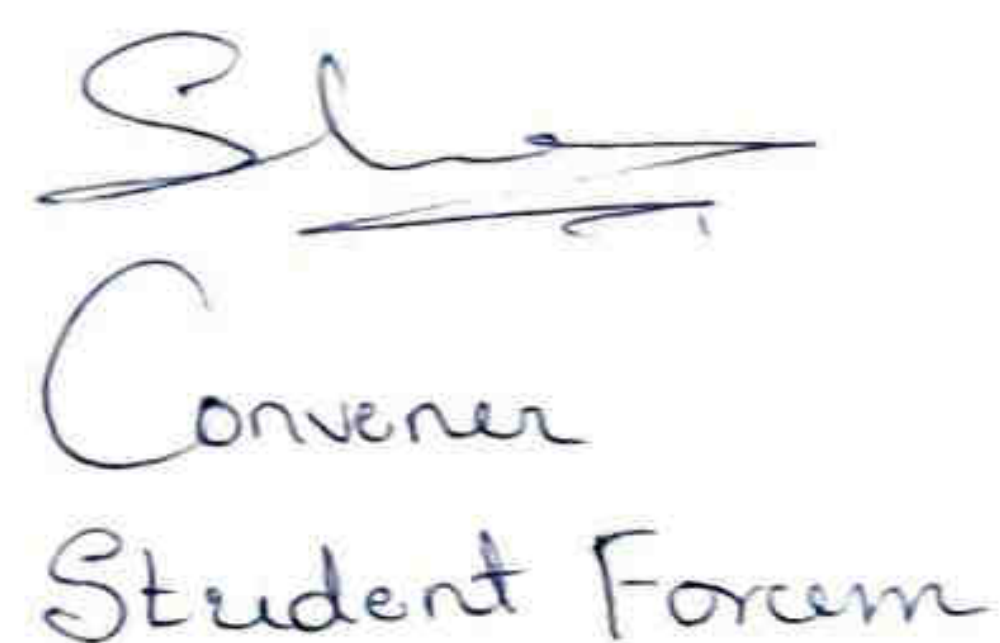 Convener
Student Forum